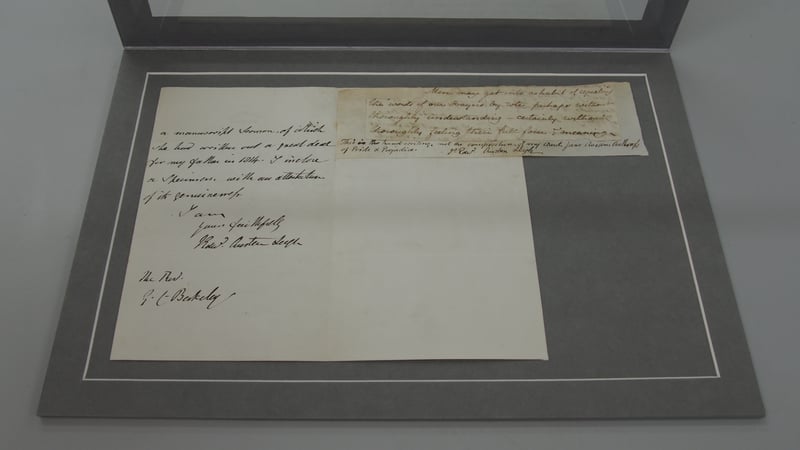 a manuscript Sermon, of which
she had written out a great deal
for my father in 1814. I inclose
a Specimen, with an attestation
of its genuineness.
I am
yours faithfully
Austen Leigh
The Rev.
Men may get into a habit of repeating
the words of our Prayers by rote, perhaps without
thoroughly understanding - certainly without
thoroughly feeling their full force & meaning
This is the hand writing, not the composition, of my Aunt Jane Austen Author
of Pride & Prejudice. Austen Leigh